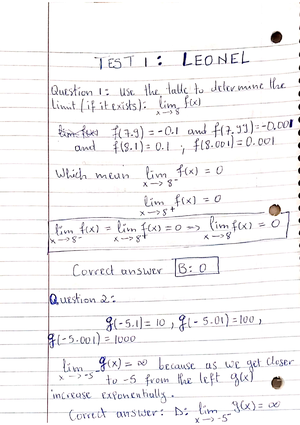 TEST 1: LEONEL
Question 1: use the table to determine the
limit (if it exists): lim f(x)
x→8
f(7.9) = -0.1 and f(7.99) = -0.001
and f(8.1) = 0.1 , f(8.001) = 0.001
Which mean lim f(x) = 0
x→8⁻
lim f(x) = 0
x→8⁺
lim f(x) = lim f(x) = 0 => lim f(x) = 0
x→8⁻ x→8⁺ x→8
Correct answer B: 0
Question 2:
g(-5.1) = 10 , g(-5.01) = 100 ,
g(-5.001) = 1000
lim g(x) = ∞ because as we get closer
x→-5⁻ to -5 from the left g(x)
increase exponentially.
Correct answer: D: lim g(x) = ∞
x→-5⁻